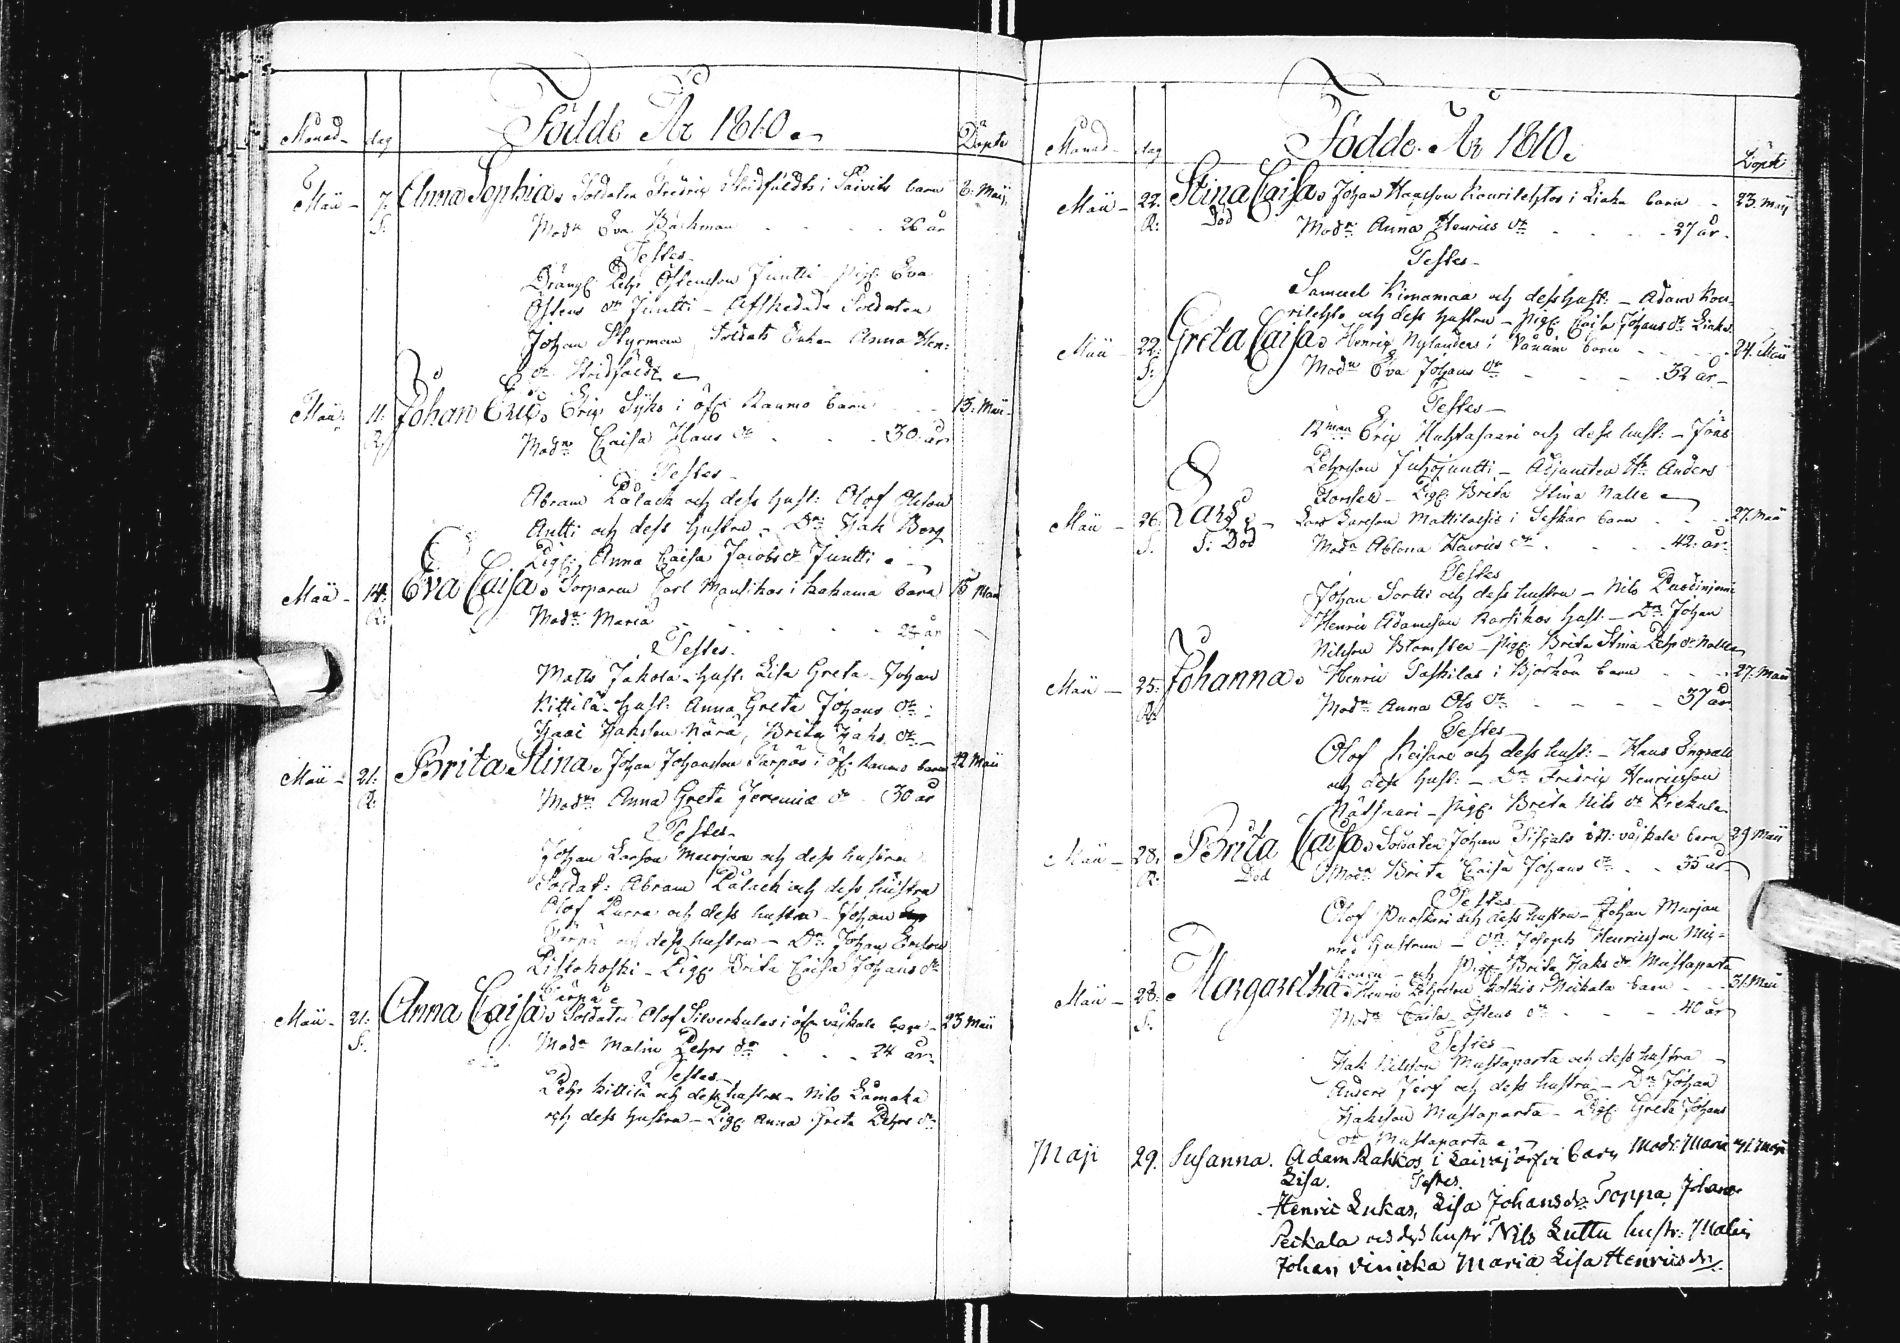 Månad dag Födde År 1810. Döpte
Maii 7. Anna Sophia. Soldaten Fredrix Stridfäldts i Säivits barn 8. Maij
S. Modn Eva Bäckman 26 år
Testes
Drängn Pehr Östensson Juntti - Pign Eva
Östens dr Juntti - Afskedade Soldaten
Johan Styrman Soldats Enkan Anna Hen:
dr Stridfäldt
Maii 11. Johan Eric. Erix Sijks i öfr Raumo barn 13. Maii
R. Modn Caisa Hans dr 30 år
Testes
Abram Pålack och dess hust: Olof Olsson
Antti och dess hustru - Dr Isak Berg
Pign Anna Caisa Jacobs dr Juntti
Maii 14. Eva Caisa. Torparen Carl Mansikas i Kakama barn 15 Maii
R. Modn Maria 24 år
Testes
Matts Jakola hust. Lisa Greta Johan
Kittilä hust. Anna Greta Johans dr
Isaac Isaksson Närä, Brita Isaks dr
Maii 21. Brita Stina. Johan Johansson Pärpäs i öfr Raumo barn 22 Maii
R. Modn Anna Greta Jeremiæ dr 30 år
Testes
Johan Larsson Meurjan och dess hustru
Soldat: Abram Pålack och dess hustru
Olof Purra och dess hustru - Johan
Pärpä och dess hustru - Dr Johan Ericson
Listokoski - Pign Brita Caisa Johans dr
Pärpä
Maii 21. Anna Caisa. Soldaten Olof Silverhulas i öfr Vojkala barn 23 Maii
S. Modn Malin Pehrs dr 24 år
Testes
Pehr Kittilä och dess hustru - Nils Lamaka
och dess hustru - Pign Anna Greta Pehrs dr
Månad dag Födde År 1810. Döpte
Maii 22. Stina Caisa. Johan Hansson Kourilehtos i Liaka barn 23. Maij
R. Död Modn Anna Henrics dr 27 år
Testes
Samuel Kinamaa och dess hust. - Adam Kou-
rilehto och dess hustru - Pign Caisa Johans dr Liaka
Maii 22. Greta Caisa. Henrix Nylanders i barn 24. Maii
S. Modn Eva Johans dr 32 år
Testes
12 man Erix Huhtasaari och dess hust. - Jöns
Pehrsson Juhojuntti - Adjuncten Hr Anders
Pign Brita Stina Nalle
Maii 26. Lars. Lars Larsson Mattilassis i Seskar barn 27. Maii
S. S. Död Modn Ablona Henrics dr 42 år
Testes
Johan Sortti och dess hustru - Nils
Henric Adamsson Karsikos hust. - Dr Johan
Nilsson Blomster - Pign Brita Stina Pehrs dr Nalle
Maii 25. Johanna. Henric Taskilas i Björkön barn 27. Maii
R. Modn Anna Ols dr 37 år
Testes
Olof Keisare och dess hust. - Hans Engvall
och dess hust. - Dr Fredrix Henricsson
Nätsaari - Pign Brita Nils dr Kiekula
Maii 28. Brita Caisa. Soldaten Johan i N: Vojkala barn 29 Maii
R. Död Modn Brita Caisa Johans dr 35 år
Testes
Olof Puoskari och dess hustru - Johan Meurjan
med hustrun - Dr Joseph Henricsson
och Pign Brita Isaks dr Mustaparta
Maii 28. Margaretha. Henric Pehrsson i Neikala barn 31. Maii
S. Modn Caisa Östens dr 40 år
Testes
Isak Nilsson Mustaparta och dess hustru
Anders Jerf och dess hustru - Dr Johan
Isaksson Mustaparta - Pign Greta Johans
dr Mustaparta
Maji 29. Susanna. Adam Rahkos i Laivajärfvi barn Modr: Maria 31. Maji
Lisa. Testes
Henric Lukas, Lisa Johansdr Poppa, Johan
Peikala och dess hustr Nils Luttu hustr: Malin
Johan Vinikka Maria Lisa Henricsdr.